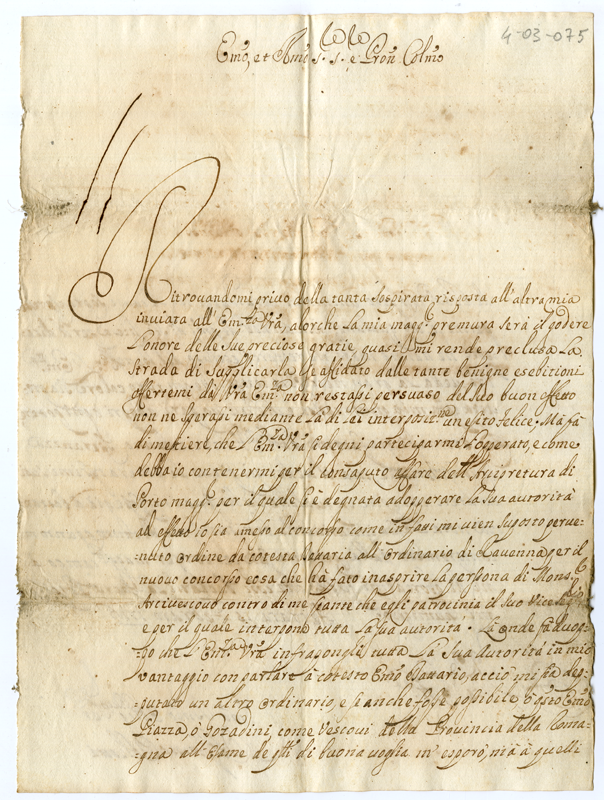 4-03-075
Emo, et Rmo s. s. e Pron Colmo
Ritrovandomi privo della tanta sospirata risposta all'altra mia
inviata all'Em.za Vra, alorche la mia magg.r premura serà il godere
l'onore delle sue preciose gratie, quasi mi rende preclusa la
strada di supplicarla se affidato dalle tante benigne esebitioni
offertemi da Vra Em.za non restassi persuaso del suo buon effetto
non ne sperassi mediante la di lei interposit.ne un esito felice. Mà fà
di mestiere, che l'Em.za Vra si degni parteciparmi l'opperato, e come
debba io contenermi per il consaputo affare dell'Arcipretura di
Porto magg.e per il quale si è degnata adopperare la sua autorità
ad effetto io sia ameso al concorso come in favi mi vien suposto perve=
=nuto ordine da cotesta Dataria all'ordinario di Ravenna per il
nuovo concorso cosa che hà fato inasprire la persona di Mons.r
Arcivescovo contro di me stante che egli patrocinia il suo Vice
e per il quale interpone tutta la sua autorità. La onde fà duop=
=po che l'Em.za Vra infraponghi tutta la sua autorità in mio
vantaggio con parlare à cotesto Emo Datario, acciò mi sia dep=
=putato un altro ordinario, e se anche fosse possibile ò gsto Emo
Piazza, ò Gozadini, come Vescovi della Provincia della Roma=
=gna all'esame de qsti di buona voglia m'esporò, mà à quelli